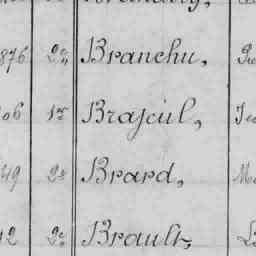 876 2e Branchu,
06 1r Brajeul,
49 2e Brard,
12 2e Brault,